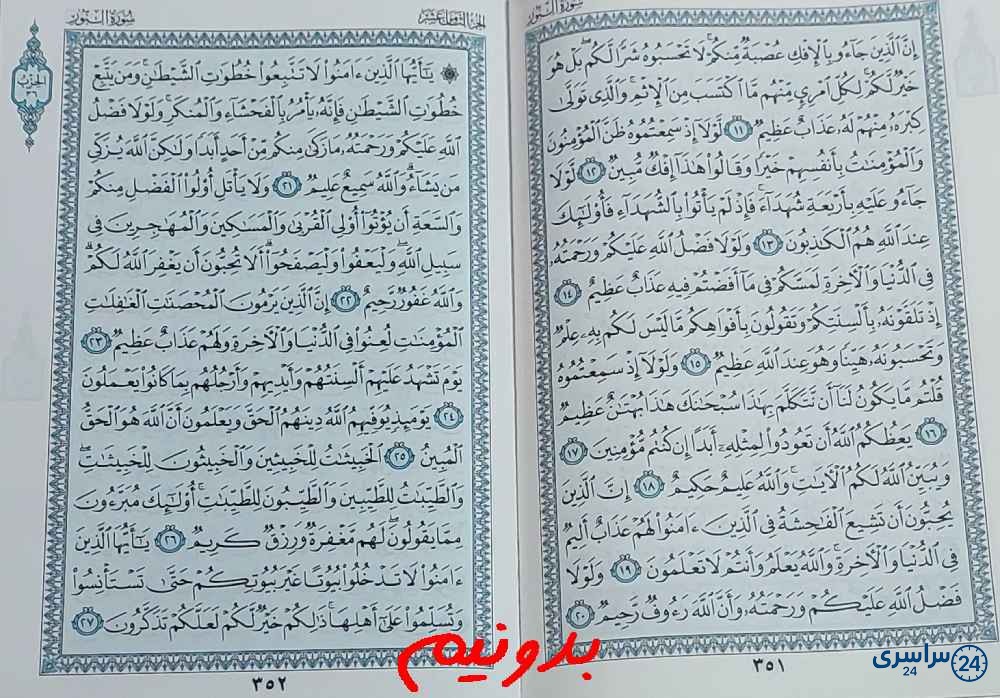 سُورَةُ النُّورِ
إِنَّ الَّذِينَ جَاءُو بِالْإِفْكِ عُصْبَةٌ مِّنكُمْ لَا تَحْسَبُوهُ شَرًّا لَّكُم بَلْ هُوَ
خَيْرٌ لَّكُمْ لِكُلِّ امْرِئٍ مِّنْهُم مَّا اكْتَسَبَ مِنَ الْإِثْمِ وَالَّذِي تَوَلَّىٰ
كِبْرَهُ مِنْهُمْ لَهُ عَذَابٌ عَظِيمٌ ١١ لَّوْلَا إِذْ سَمِعْتُمُوهُ ظَنَّ الْمُؤْمِنُونَ
وَالْمُؤْمِنَاتُ بِأَنفُسِهِمْ خَيْرًا وَقَالُوا هَٰذَا إِفْكٌ مُّبِينٌ ١٢ لَّوْلَا
جَاءُو عَلَيْهِ بِأَرْبَعَةِ شُهَدَاءَ فَإِذْ لَمْ يَأْتُوا بِالشُّهَدَاءِ فَأُولَٰئِكَ
عِندَ اللَّهِ هُمُ الْكَاذِبُونَ ١٣ وَلَوْلَا فَضْلُ اللَّهِ عَلَيْكُمْ وَرَحْمَتُهُ
فِي الدُّنْيَا وَالْآخِرَةِ لَمَسَّكُمْ فِي مَا أَفَضْتُمْ فِيهِ عَذَابٌ عَظِيمٌ ١٤
إِذْ تَلَقَّوْنَهُ بِأَلْسِنَتِكُمْ وَتَقُولُونَ بِأَفْوَاهِكُم مَّا لَيْسَ لَكُم بِهِ عِلْمٌ
وَتَحْسَبُونَهُ هَيِّنًا وَهُوَ عِندَ اللَّهِ عَظِيمٌ ١٥ وَلَوْلَا إِذْ سَمِعْتُمُوهُ
قُلْتُم مَّا يَكُونُ لَنَا أَن نَّتَكَلَّمَ بِهَٰذَا سُبْحَانَكَ هَٰذَا بُهْتَانٌ عَظِيمٌ
١٦ يَعِظُكُمُ اللَّهُ أَن تَعُودُوا لِمِثْلِهِ أَبَدًا إِن كُنتُم مُّؤْمِنِينَ ١٧
وَيُبَيِّنُ اللَّهُ لَكُمُ الْآيَاتِ وَاللَّهُ عَلِيمٌ حَكِيمٌ ١٨ إِنَّ الَّذِينَ
يُحِبُّونَ أَن تَشِيعَ الْفَاحِشَةُ فِي الَّذِينَ ءَامَنُوا لَهُمْ عَذَابٌ أَلِيمٌ
فِي الدُّنْيَا وَالْآخِرَةِ وَاللَّهُ يَعْلَمُ وَأَنتُمْ لَا تَعْلَمُونَ ١٩ وَلَوْلَا
فَضْلُ اللَّهِ عَلَيْكُمْ وَرَحْمَتُهُ وَأَنَّ اللَّهَ رَءُوفٌ رَّحِيمٌ ٢٠
٣٥١
الجزء الثامن عشر
سُورَةُ النُّورِ
الحزب
يَا أَيُّهَا الَّذِينَ ءَامَنُوا لَا تَتَّبِعُوا خُطُوَاتِ الشَّيْطَانِ وَمَن يَتَّبِعْ
خُطُوَاتِ الشَّيْطَانِ فَإِنَّهُ يَأْمُرُ بِالْفَحْشَاءِ وَالْمُنكَرِ وَلَوْلَا فَضْلُ
اللَّهِ عَلَيْكُمْ وَرَحْمَتُهُ مَا زَكَىٰ مِنكُم مِّنْ أَحَدٍ أَبَدًا وَلَٰكِنَّ اللَّهَ يُزَكِّي
مَن يَشَاءُ وَاللَّهُ سَمِيعٌ عَلِيمٌ ٢١ وَلَا يَأْتَلِ أُولُوا الْفَضْلِ مِنكُمْ
وَالسَّعَةِ أَن يُؤْتُوا أُولِي الْقُرْبَىٰ وَالْمَسَاكِينَ وَالْمُهَاجِرِينَ فِي
سَبِيلِ اللَّهِ وَلْيَعْفُوا وَلْيَصْفَحُوا أَلَا تُحِبُّونَ أَن يَغْفِرَ اللَّهُ لَكُمْ
وَاللَّهُ غَفُورٌ رَّحِيمٌ ٢٢ إِنَّ الَّذِينَ يَرْمُونَ الْمُحْصَنَاتِ الْغَافِلَاتِ
الْمُؤْمِنَاتِ لُعِنُوا فِي الدُّنْيَا وَالْآخِرَةِ وَلَهُمْ عَذَابٌ عَظِيمٌ ٢٣
يَوْمَ تَشْهَدُ عَلَيْهِمْ أَلْسِنَتُهُمْ وَأَيْدِيهِمْ وَأَرْجُلُهُم بِمَا كَانُوا يَعْمَلُونَ
٢٤ يَوْمَئِذٍ يُوَفِّيهِمُ اللَّهُ دِينَهُمُ الْحَقَّ وَيَعْلَمُونَ أَنَّ اللَّهَ هُوَ الْحَقُّ
الْمُبِينُ ٢٥ الْخَبِيثَاتُ لِلْخَبِيثِينَ وَالْخَبِيثُونَ لِلْخَبِيثَاتِ
وَالطَّيِّبَاتُ لِلطَّيِّبِينَ وَالطَّيِّبُونَ لِلطَّيِّبَاتِ أُولَٰئِكَ مُبَرَّءُونَ
مِمَّا يَقُولُونَ لَهُم مَّغْفِرَةٌ وَرِزْقٌ كَرِيمٌ ٢٦ يَا أَيُّهَا الَّذِينَ
ءَامَنُوا لَا تَدْخُلُوا بُيُوتًا غَيْرَ بُيُوتِكُمْ حَتَّىٰ تَسْتَأْنِسُوا
وَتُسَلِّمُوا عَلَىٰ أَهْلِهَا ذَٰلِكُمْ خَيْرٌ لَّكُمْ لَعَلَّكُمْ تَذَكَّرُونَ ٢٧
٣٥٢
بدونیم
سراسری
24
24